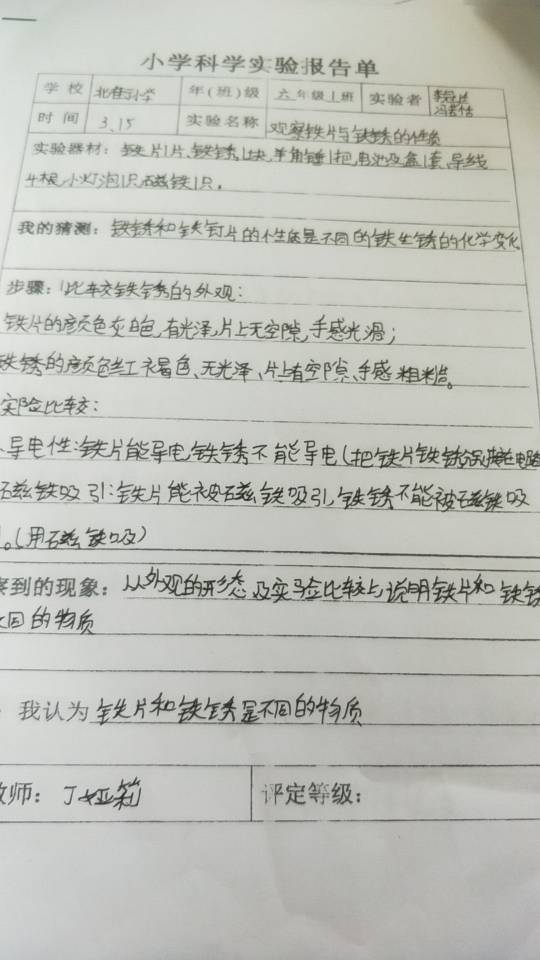 小学科学实验报告单
学校 北隹小学 年(班)级 六年级1班 实验者
时间 3.15 实验名称 观察铁片与铁锈的性质
实验器材：铁片1片、铁锈1块、羊角锤1把、电池及盒1套、导线
4根、小灯泡1只、磁铁1只。
我的猜测：铁锈和铁钉片的性质是不同的铁生锈的化学变化
步骤：1比较铁锈的外观：
铁片的颜色灰白色,有光泽,片上无空隙,手感光滑；
铁锈的颜色红褐色、无光泽、片上有空隙、手感粗糙。
实验比较：
导电性：铁片能导电,铁锈不能导电(把铁片铁锈 接在电路
磁铁吸引：铁片能被磁铁吸引,铁锈不能被磁铁吸
。(用磁铁吸)
察到的现象：从外观的形态及实验比较上说明铁片和铁锈
不同的物质
我认为 铁片和铁锈是不同的物质
教师：丁娅莉 评定等级：